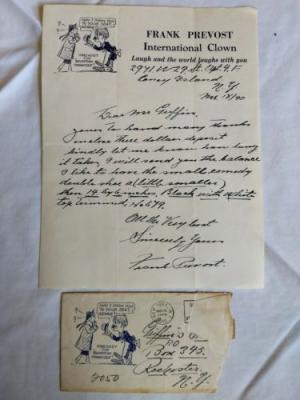 FRANK PREVOST
International Clown
Laugh and the world laughs with you
2941 W 29 St. Apt 4. F
Coney Island
N.Y
Dear Mr Griffin
Yours to hand many thanks
inclose three dollars deposit
kindly let me know how long
it takes, I will send you the balance
I like to have the small comedy
double shoe a (little smaller)
then 14 by 6 inches, Black with white
top trimmed, No 579.
All the Very best
Sincerely Yours
Frank Prevost.
Griffin's
PO
Box 345.
Rochester
N.Y.